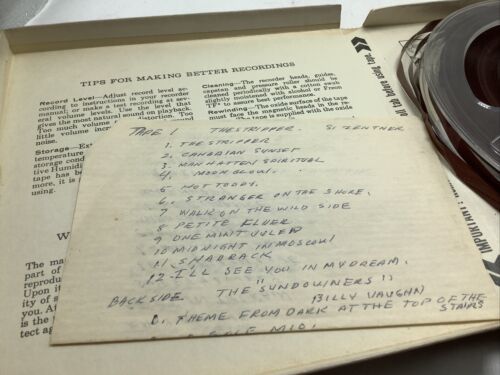 TIPS FOR MAKING BETTER RECORDINGS
Record Level—Adjust record level ac-
cording to instructions in your recorder
manual, or make a test recording at sev-
eral volume levels. Use the level that
gives the most natural sound on playback.
Too much volume distortion. Too
little volume
noise.
Storage—
temperature
storage
tive
tape has
more, it is
using.
Cleaning—The recorder heads, guides,
capstan and pressure roller should be
cleaned periodically with a cotton swab
slightly moistened with alcohol or Freon
TF* to assure best performance.
Rewinding—The oxide surface of the tape
must face the magnetic heads in the re-
The tape is supplied with the oxide
The
part of
reprodu
Upon
ity of
you.
is the
tect
all tab before using tape.
IMPORTANT:
TAPE 1 THE STRIPPER SI ZENTNER
1. THE STRIPPER
2. CANADIAN SUNSET
3. MANHATTEN SPIRITUAL
4. MOON GLOW.
5 HOT TODDY.
6. STRANGER ON THE SHORE.
7 WALK ON THE WILD SIDE
8 PETITE FLUER
9 ONE MINT JULEP
10 MIDNIGHT IN MOSCOW
11 SHADRACK
12 - I'LL SEE YOU IN MY DREAM.
BACKSIDE "THE SUNDOWNERS"
BILLY VAUGHN
1. THEME FROM DARK AT THE TOP OF THE
STAIRS